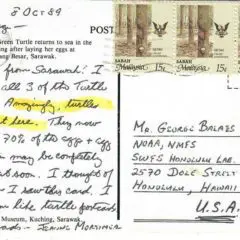 8 Oct 89
POST
Green Turtle returns to sea in the
after laying her eggs at
ang Besar, Sarawak.
from Sarawak! I
all 3 of the Turtle
Amazingly, turtles
t here. They now
70% of the eggs & egg
may be completely
soon. I thought of
I saw this card. I
like turtle postcards
Museum, Kuching, Sarawak.
Jeanne Mortimer
SABAH
Malaysia 15¢
SABAH
Malaysia 15¢
Mr. George Balazs
NOAA, NMFS
SWFS Honolulu Lab.
2570 Dole Street
Honolulu, Hawaii
U.S.A.